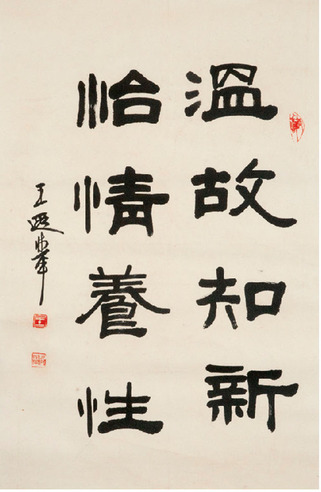 溫故知新
怡情養性
王遐舉